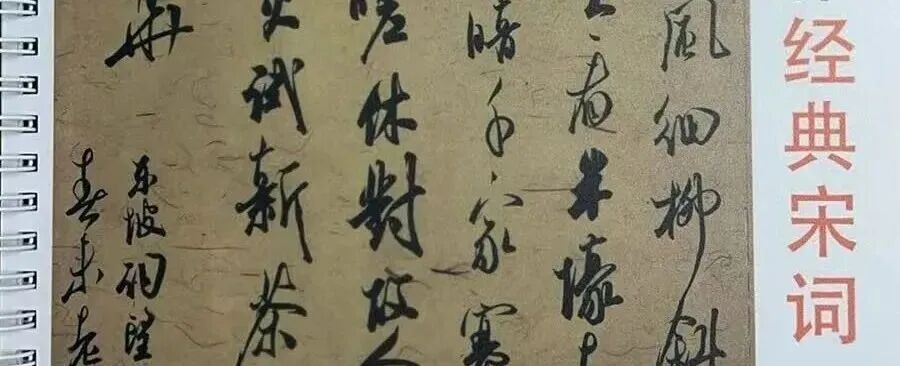 经典宋词
風細柳斜
上看半壕
暗千家寒
嗟休對故人
火試新茶
華
東坡詞望
春未老